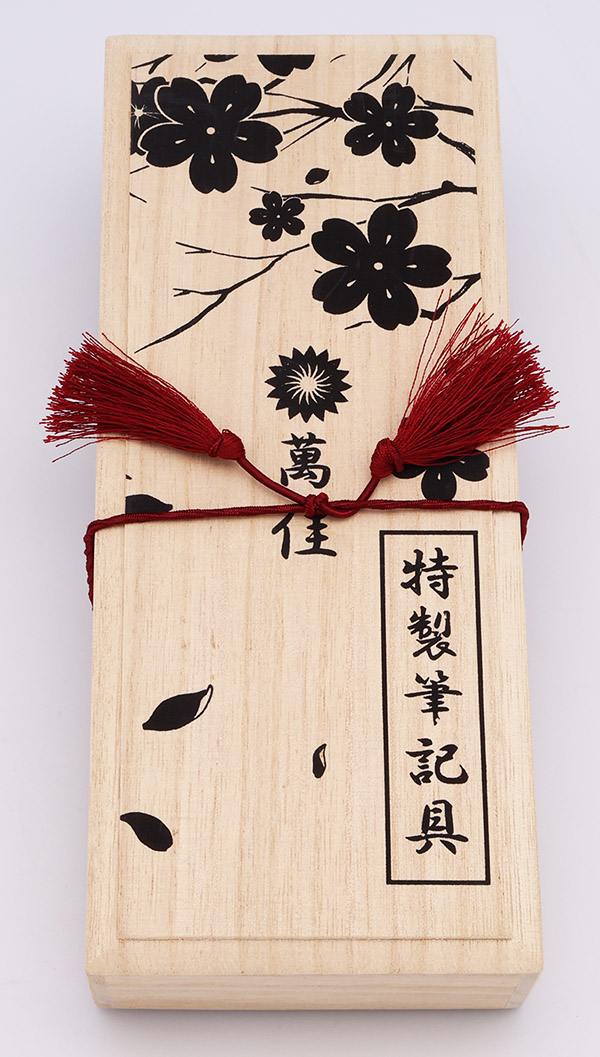 萬佳
特製筆記具